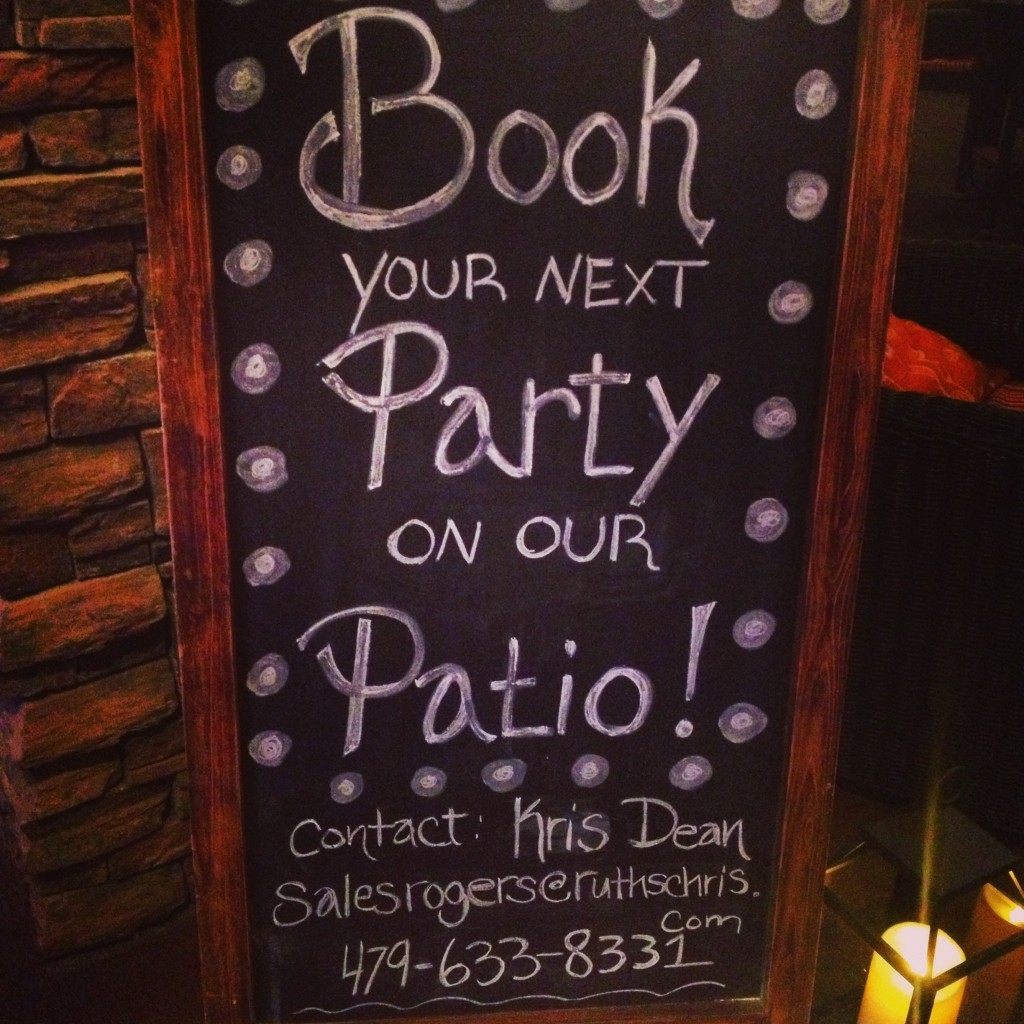 Book
YOUR NEXT
Party
ON OUR
Patio!
Contact: Kris Dean
salesrogers@ruthschris.
com
479-633-8331